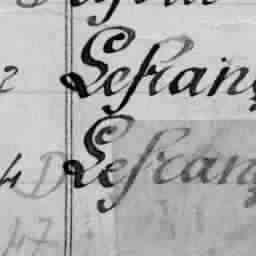 2 Lefranç
4 D Lefranç
47